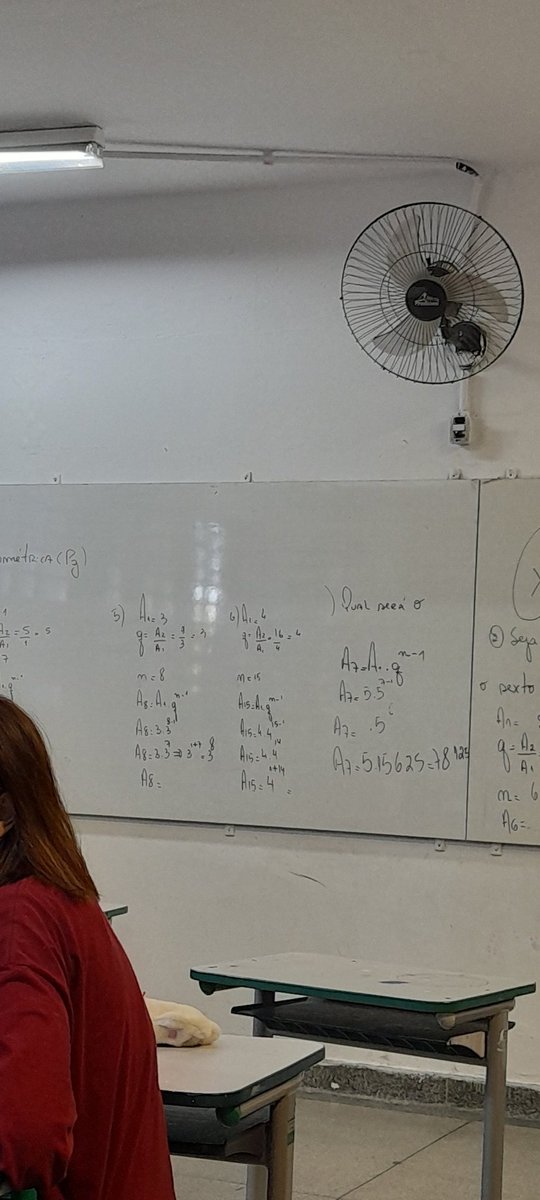 ométrica (Pg)
A2/A1 = 5/1 = 5
7
5) A1 = 3
q = A2/A1 = 9/3 = 3
n = 8
A8 = A1 . q^n-1
A8 = 3.3^8-1
A8 = 3.3^7 => 3^1+7 = 3^8
A8 =
6) A1 = 4
q = A2/A1 = 16/4 = 4
n = 15
A15 = A1 q^n-1
A15 = 4.4^15-1
A15 = 4.4^14
A15 = 4^1+14 =
) Qual será o
A7 = A1 . q^n-1
A7 = 5.5^7-1
A7 = .5^6
A7 = 5.15625 = 78125
2) Seja
o sexto
A1 =
q = A2/A1
n = 6
A6 =